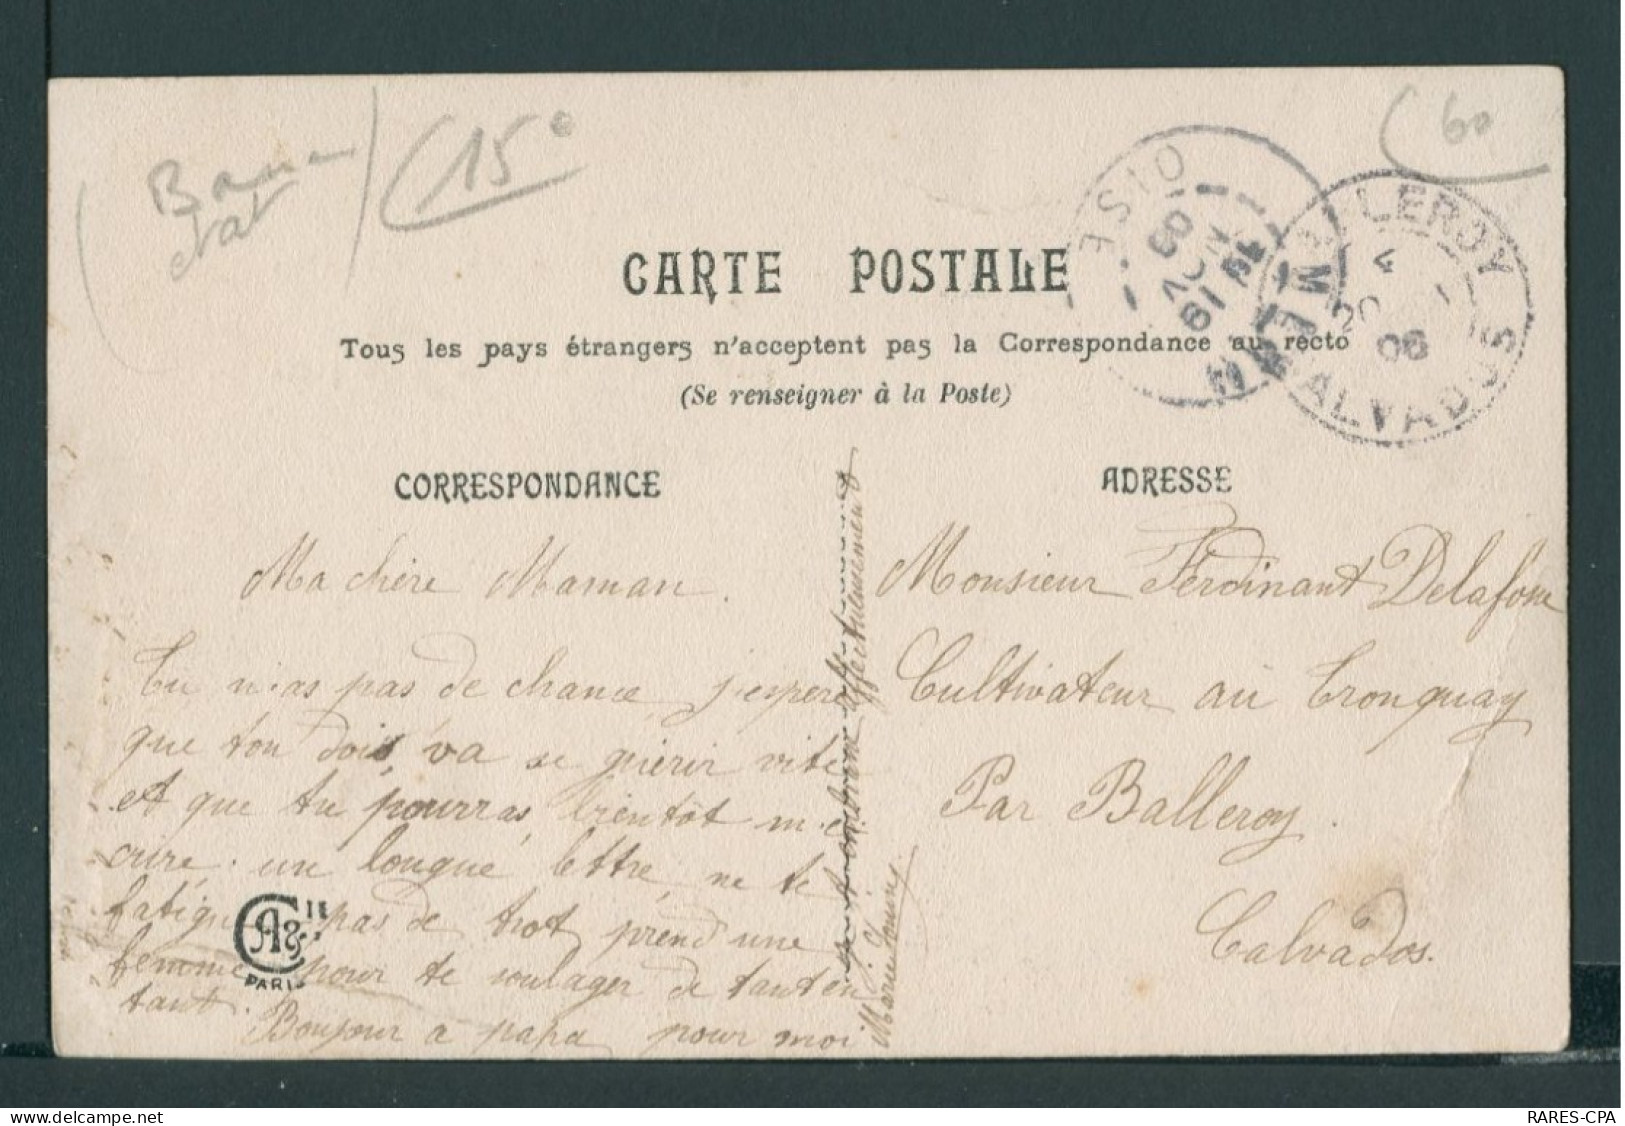 (15e
(60
CARTE POSTALE
Tous les pays étrangers n'acceptent pas la Correspondance au recto
(Se renseigner à la Poste)
OISE
19 NOV
LLEROY
4
20
06
CALVADOS
CORRESPONDANCE
Ma chère Maman.
Tu n'as pas de chance, j'espere
que ton dois va se guérir vite
et que tu pourras bientôt m'é
crire un longue lettre, ne te
fatigue pas de trot, prend une
femme pour te soulager de tant en
tant. Bonjour a papa pour moi
affectueusement
Marie
A & Cie
PARIS
ADRESSE
Monsieur Ferdinant Delafosse
Cultivateur au Tronquay
Par Balleroy.
Calvados.
RARES-CPA
delcampe.net